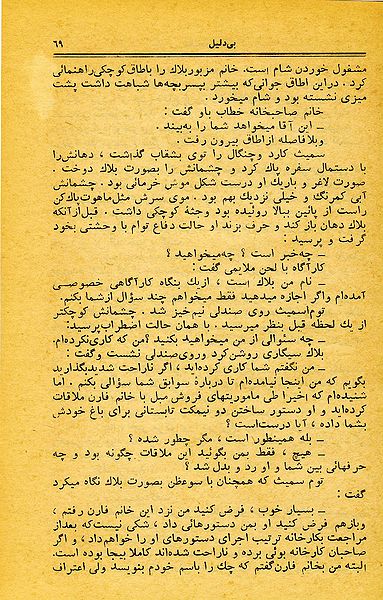 بی‌دلیل ۶۹
مشغول خوردن شام است. خانم مزبور بلاك را باطاق كوچكی راهنمائی
كرد . دراین اطاق جوانی‌كه بیشتر بپسربچه‌ها شباهت داشت پشت
میزی نشسته بود و شام میخورد .
خانم صاحبخانه خطاب باو گفت :
ـ این آقا میخواهد شما را به‌بیند .
وبلافاصله ازاطاق بیرون رفت .
سمیث كارد وچنگال را توی بشقاب گذاشت ، دهانش‌را
با دستمال سفره پاك كرد و چشمانش را بصورت بلاك دوخت .
صورت لاغر و باریك او درست شكل موش خرمائی بود . چشمانش
آبی كمرنگ و خیلی نزدیك بهم بود . موی سرش مثل ماهوت‌پاك‌كن
راست از پائین ببالا روئیده بود وجثهٔ كوچكی داشت . قبل‌ازآنكه
بلاك دهان باز كند و حرف بزند او حالت دفاع توام با وحشتی بخود
گرفت و پرسید :
ـ چه‌خبر است ؟ چه‌میخواهید ؟
كارآگاه با لحن ملایمی گفت :
ـ نام من بلاك است ، ازیك بنگاه كارآگاهی خصوصی
آمده‌ام واگر اجازه میدهید فقط میخواهم چند سؤال ازشما بكنم.
توم‌اسمیث روی صندلی نیم‌خیز شد . چشمانش كوچكتر
از یك لحظه قبل بنظر میرسید . با همان حالت اضطراب‌پرسید:
ـ چه سئوالی از من میخواهید بكنید ؟من كه كاری‌نكرده‌ام.
بلاك سیگاری روشن‌كرد وروی‌صندلی نشست وگفت :
ـ من نگفتم شما كاری كرده‌اید ، اگر ناراحت شدیدبگذارید
بگویم كه من اینجا نیامده‌ام تا دربارهٔ سوابق شما سؤالی بكنم . اما
شنیده‌ام كه اخیرا طی ماموریتهای فروش مبل با خانم فارن ملاقات
كرده‌اید و او دستور ساختن دو نیمكت تابستانی برای باغ خودش
بشما داده ، آیا درست‌است ؟
ـ بله همینطور است ، مگر چطور شده ؟
ـ هیچ ، فقط بمن بگوئید این ملاقات چگونه بود و چه
حرفهائی بین شما و او رد و بدل شد ؟
توم سمیث كه همچنان با سوءظن بصورت بلاك نگاه میكرد
گفت :
ـ بسیار خوب ، فرض كنید من نزد این خانم فارن رفتم ،
وبازهم فرض كنید او بمن دستورهائی داد ، شكی نیست‌كه بعداز
مراجعت بكارخانه ترتیب اجرای دستورهای او را خواهم‌داد ، و اگر
صاحبان كارخانه بوئی برده و ناراحت شده‌اند كاملا بیجا بوده است.
البته من بخانم فارن‌گفتم كه چك را باسم خودم بنویسد ولی اعتراف